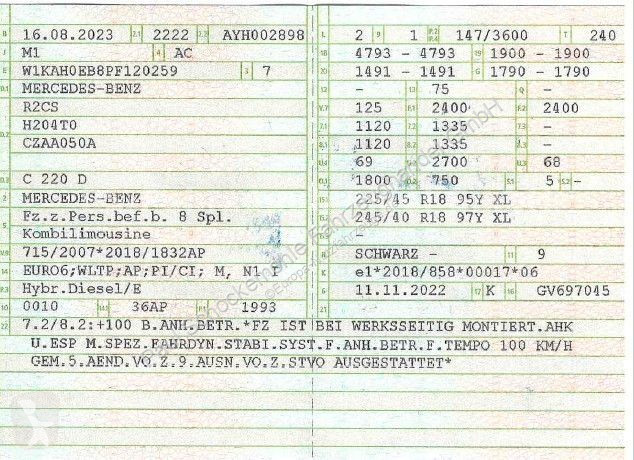 B 16.08.2023 2.1 2222 2.2 AYH002898
J M1 4 AC
E W1KAH0EB8PF120259 3 7
D.1 MERCEDES-BENZ
R2CS
D.2 H204T0
CZAA050A
D.3 C 220 D
2 MERCEDES-BENZ
5 Fz.z.Pers.bef.b. 8 Spl.
Kombilimousine
V.9 715/2007*2018/1832AP
14 EURO6;WLTP;AP;PI/CI; M, N1 I
P.3 Hybr.Diesel/E
10 0010 14.1 36AP P.1 1993
L 2 9 1 P.2 P.4 147/3600 T 240
18 4793 - 4793 19 1900 - 1900
20 1491 - 1491 G 1790 - 1790
12 - 13 75 Q -
V.7 125 F.1 2400 F.2 2400
7.1 1120 7.2 1335 7.3 -
8.1 1120 8.2 1335 8.3 -
U.1 69 U.2 2700 U.3 68
O.1 1800 O.2 750 S.1 5 S.2 -
15.1 225/45 R18 95Y XL
15.2 245/40 R18 97Y XL
15.3 -
R SCHWARZ - 11 9
K e1*2018/858*00017*06
6 11.11.2022 17 K 16 GV697045
21 -
22 7.2/8.2:+100 B.ANH.BETR.*FZ IST BEI WERKSSEITIG MONTIERT.AHK
U.ESP M.SPEZ.FAHRDYN.STABI.SYST.F.ANH.BETR.F.TEMPO 100 KM/H
GEM.5.AEND.VO.Z.9.AUSN.VO.Z.STVO AUSGESTATTET*